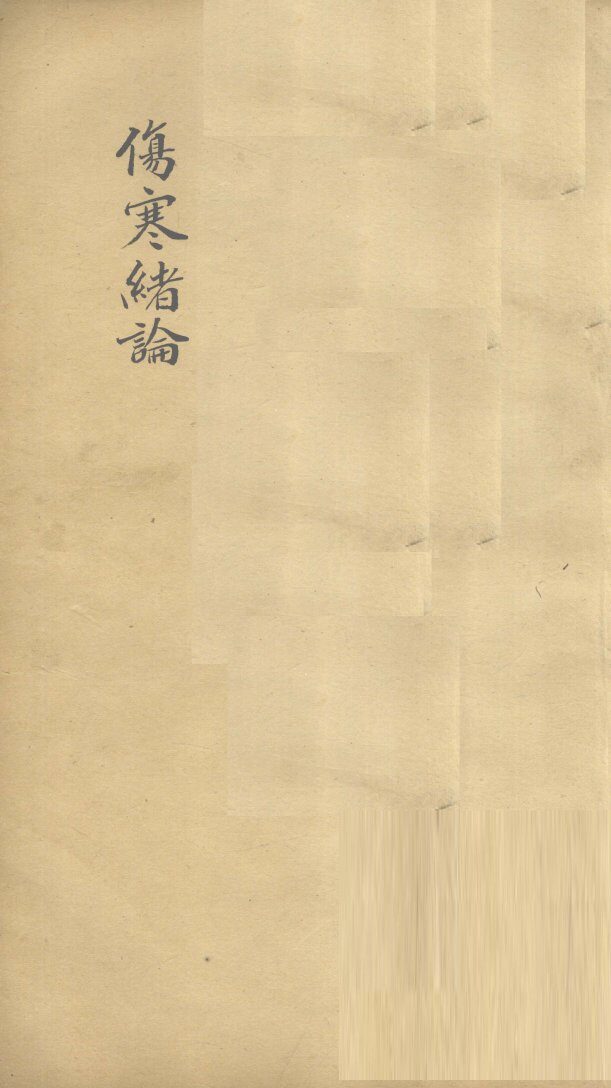 傷寒緒論